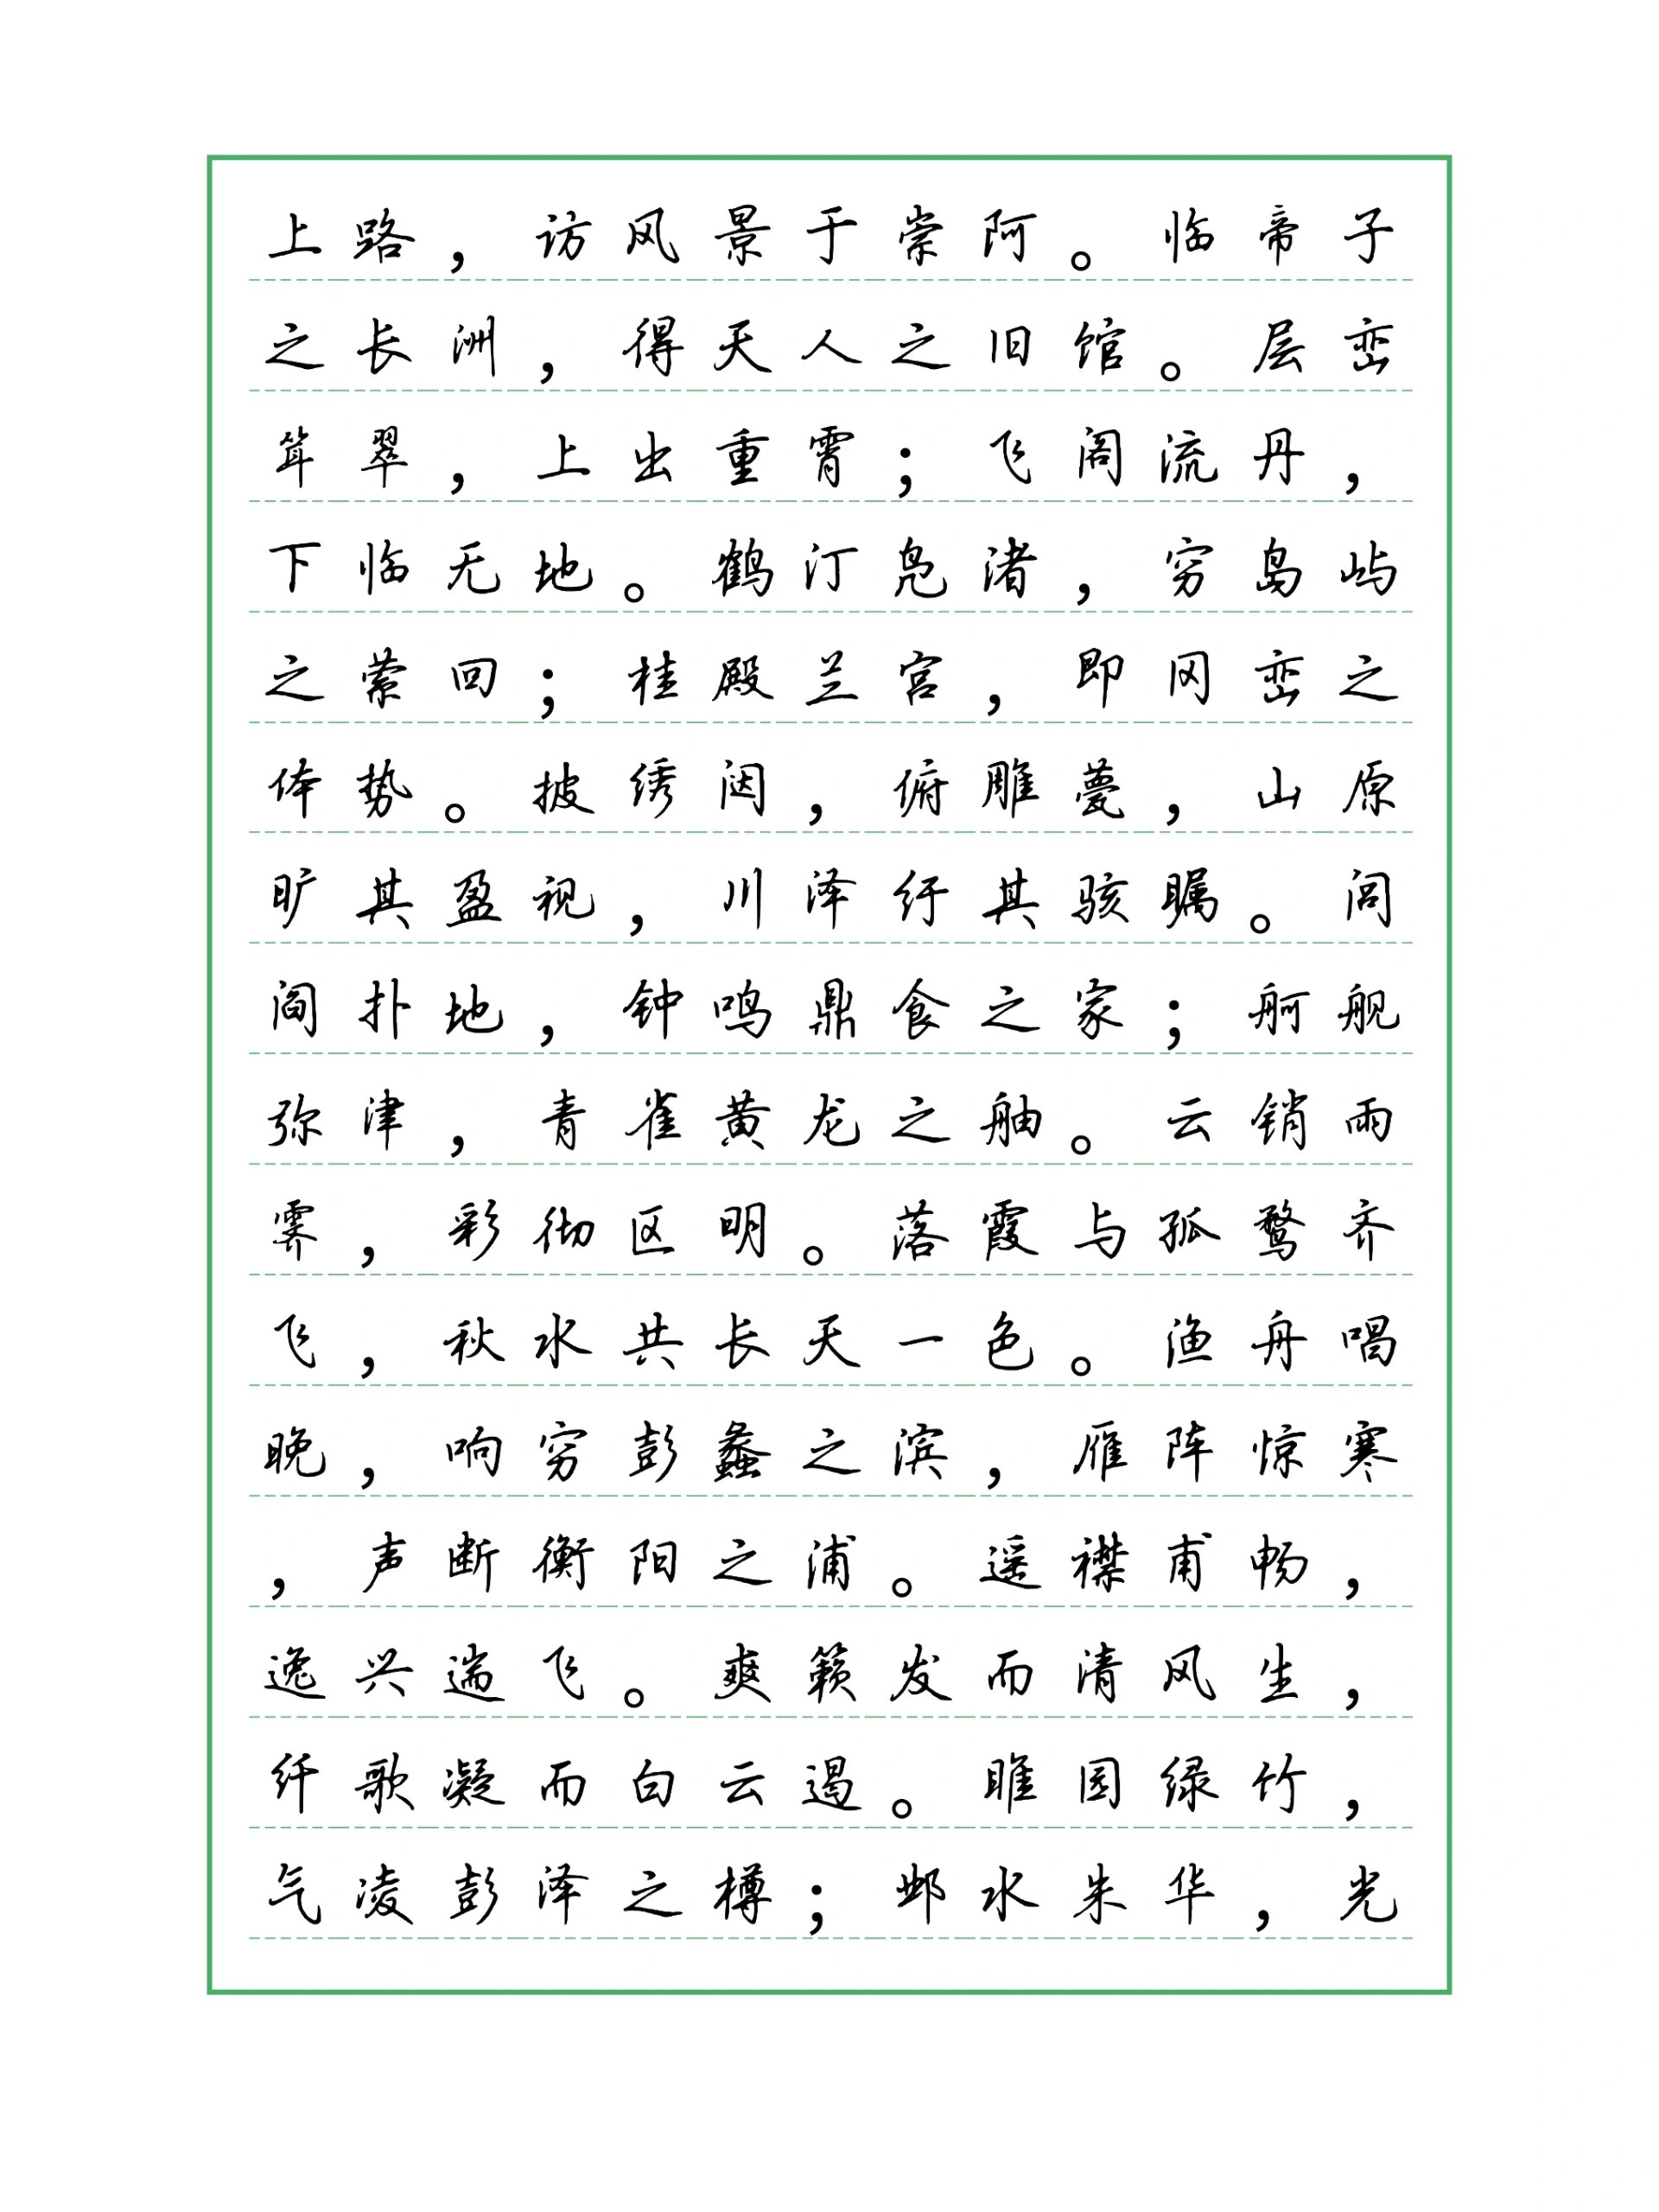 上路，访风景于崇阿。临帝子
之长洲，得天人之旧馆。层峦
耸翠，上出重霄；飞阁流丹，
下临无地。鹤汀凫渚，穷岛屿
之萦回；桂殿兰宫，即冈峦之
体势。披绣闼，俯雕甍，山原
旷其盈视，川泽纡其骇瞩。闾
阎扑地，钟鸣鼎食之家；舸舰
弥津，青雀黄龙之舳。云销雨
霁，彩彻区明。落霞与孤鹜齐
飞，秋水共长天一色。渔舟唱
晚，响穷彭蠡之滨，雁阵惊寒
，声断衡阳之浦。遥襟甫畅，
逸兴遄飞。爽籁发而清风生，
纤歌凝而白云遏。睢园绿竹，
气凌彭泽之樽；邺水朱华，光